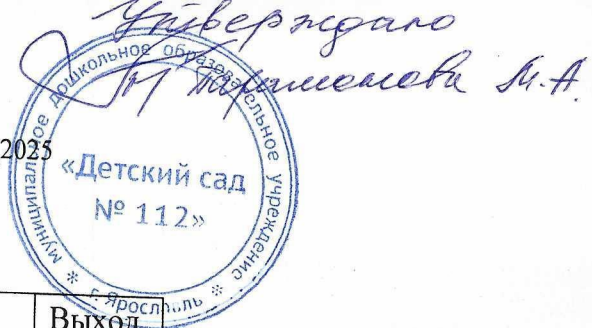 Утверждаю
Парамонова М.А.
муниципальное дошкольное образовательное учреждение
2025
«Детский сад
№ 112»
* г. Ярославль *
Выход